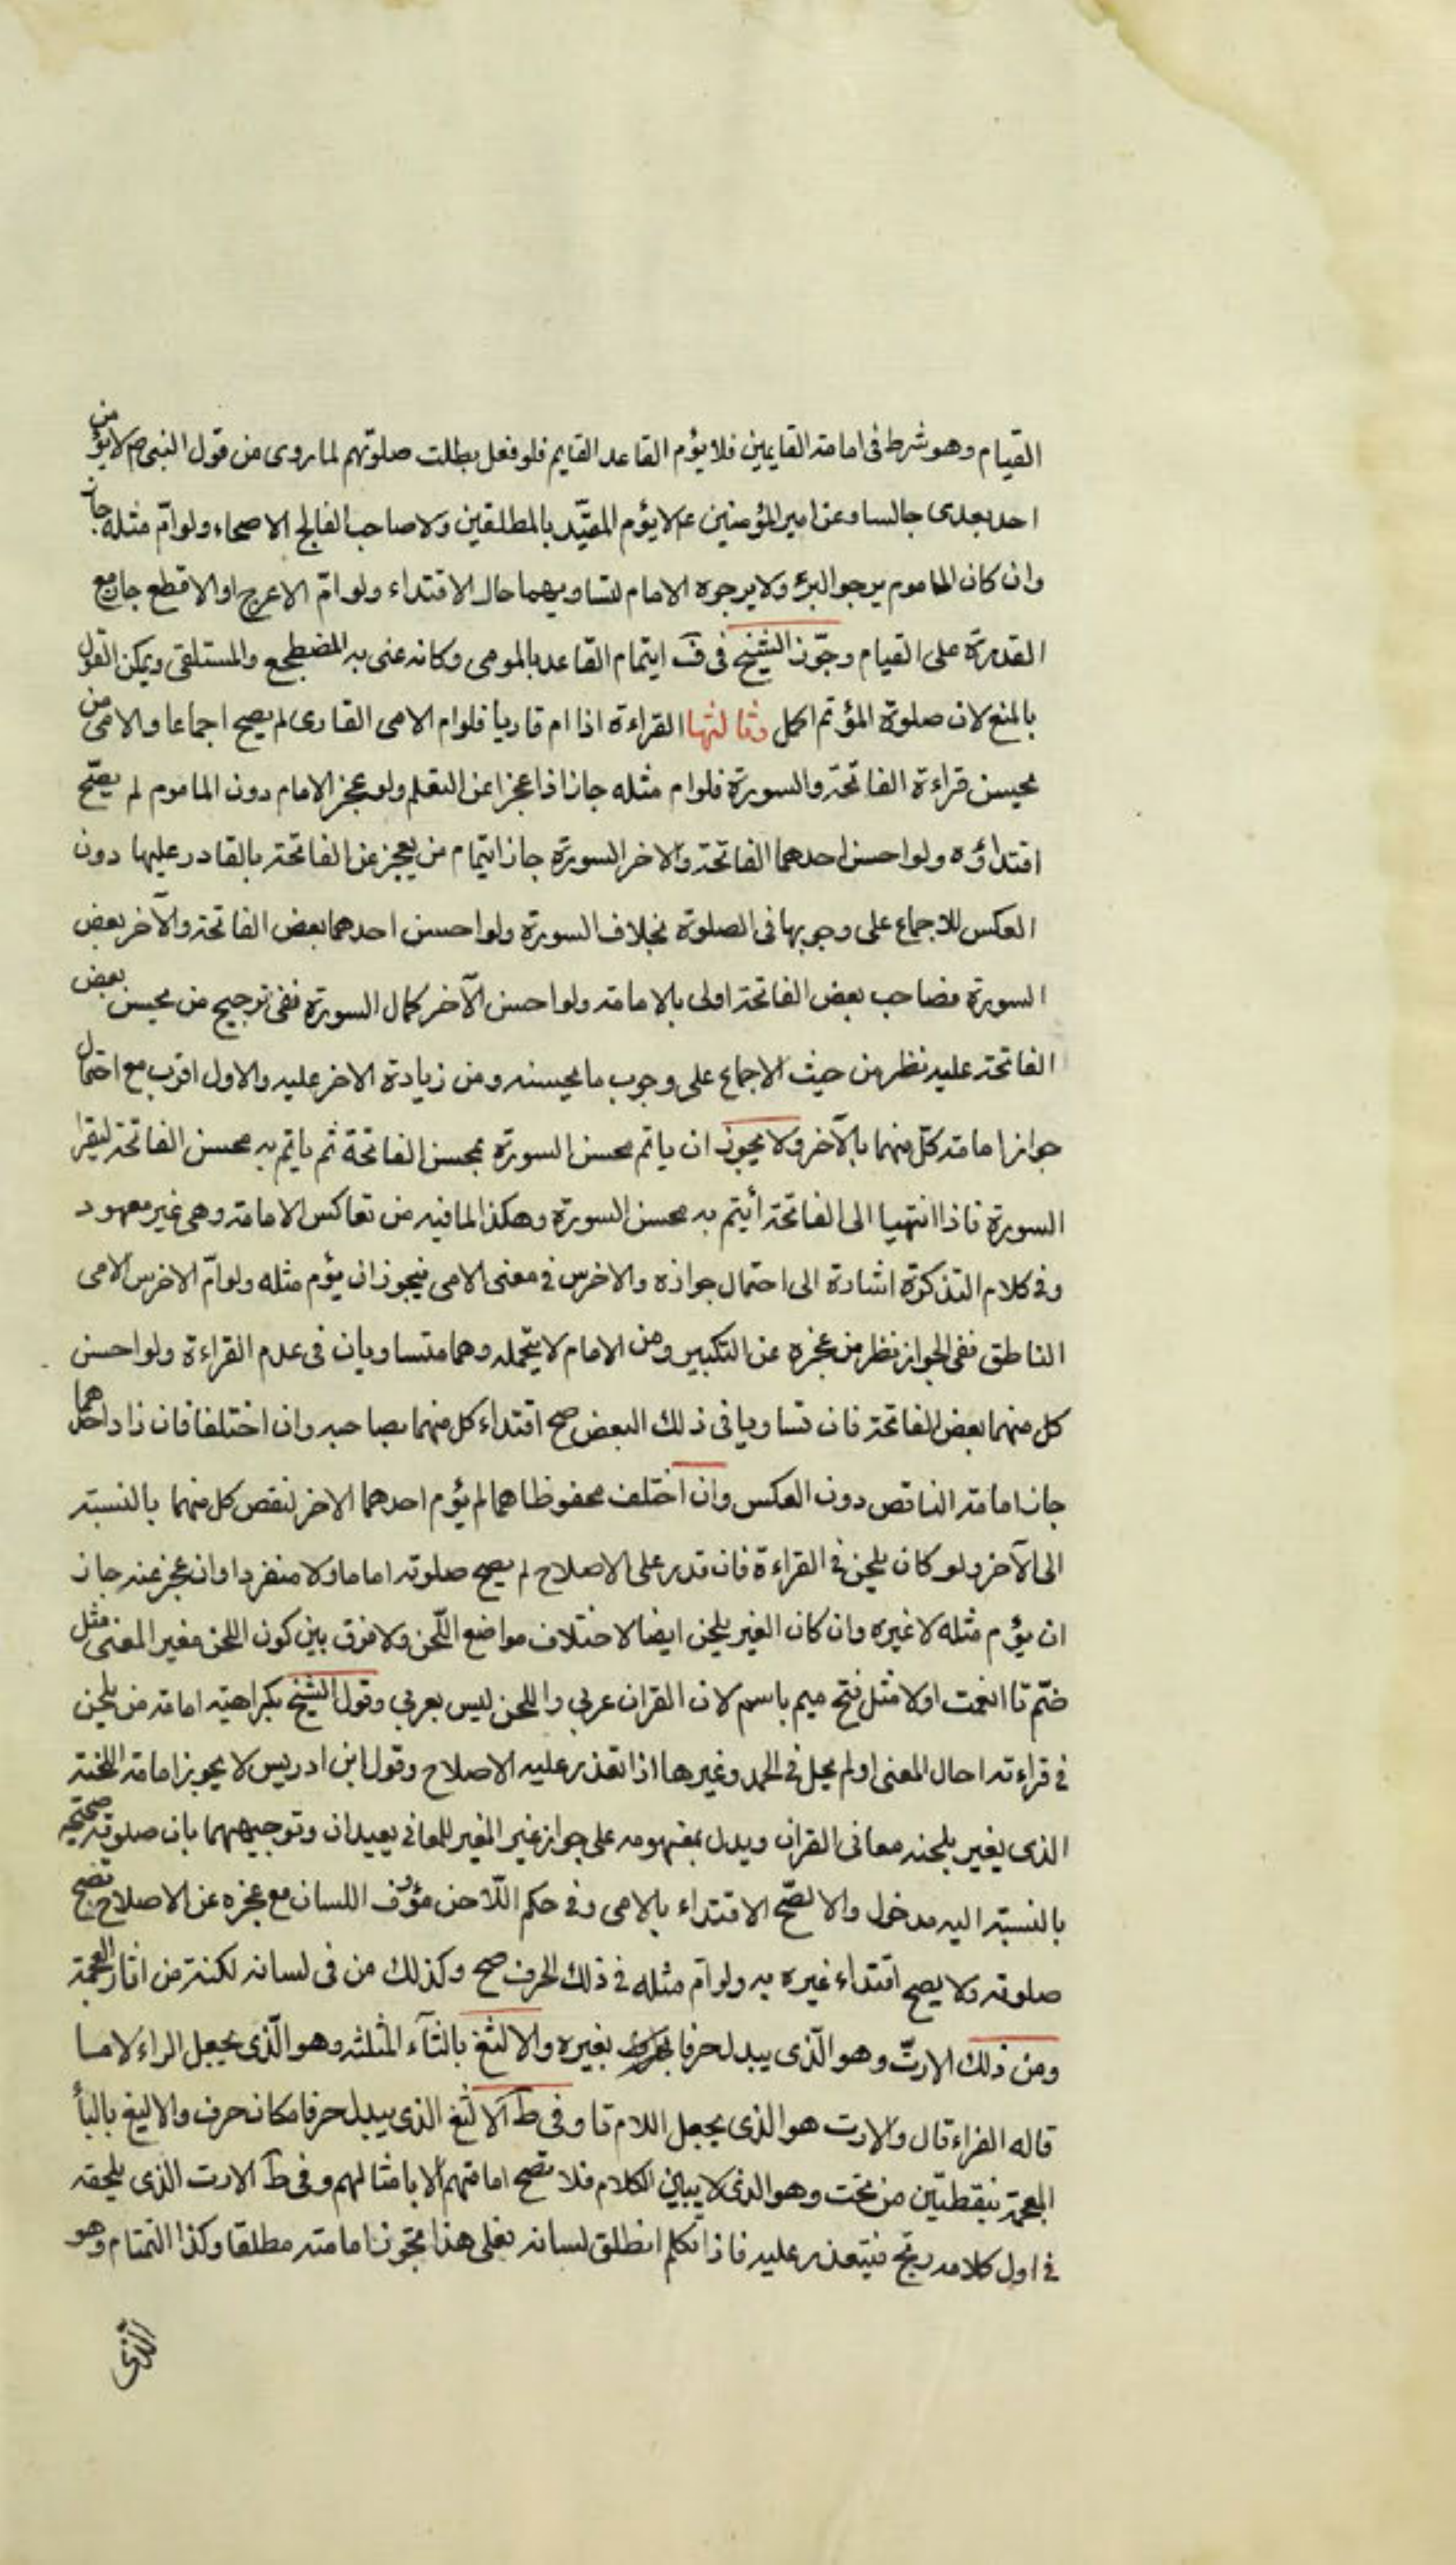 القيام وهو شرط فى امامة القايمين فلا يؤم القاعد القايم فلو فعل بطلت صلوتهم لما روى من قول النبى ص لا يؤمن
احد بعدى جالسا وعن امير المؤمنين ع لا يؤم المقيّد بالمطلقين ولا صاحب الفالج الاصحاء ولو امّ مثله جاز
وان كان الماموم يرجو البرء ولا يرجوه الامام لتساويهما حال الاقتداء ولو امّ الاعرج او الاقطع جاز مع
القدرة على القيام وجوّز الشيخ فى ف ايتمام القاعد بالمومى وكانه عنى به المضطجع والمستلقى ويمكن القول
بالمنع لان صلوة المؤتم اكمل وثالثها القراءة اذا ام قاريا فلو ام الامى القارى لم يصح اجماعا والامى من
يحسن قراءة الفاتحة والسورة فلو ام مثله جاز اذا عجزا عن التعلم ولو عجز الامام دون الماموم لم يصّح
اقتداؤه ولو احسن احدهما الفاتحة والاخر السورة جاز ايتمام من يعجز عن الفاتحة بالقادر عليها دون
العكس للاجماع على وجوبها فى الصلوة بخلاف السورة ولو احسن احدهما بعض الفاتحة والآخر بعض
السورة فصاحب بعض الفاتحة اولى بالامامة ولو احسن الآخر كمال السورة ففى ترجيح من يحسن بعض
الفاتحة عليه نظر من حيث الاجماع على وجوب ما يحسنه ومن زيادة الاخر عليه والاول اقرب مع احتمال
جواز امامة كلّ منهما بالآخر ولا يجوز ان ياتم محسن السورة بمحسن الفاتحة ثم ياتم به محسن الفاتحة ليقرا
السورة فاذا انتهيا الى الفاتحة أيتم به محسن السورة وهكذا لما فيه من تعاكس الامامة وهى غير معهود
وفى كلام التذكرة اشارة الى احتمال جوازه والاخرس فى معنى الامى فيجوز ان يؤم مثله ولو امّ الاخرس الامى
الناطق ففى الجواز نظر من عجزه عن التكبير ومن الامام لا يتحمله وهما متساويان فى عدم القراءة ولو احسن
كل منهما بعض الفاتحة فان تساويا فى ذلك البعض صح اقتداء كل منهما بصاحبه وان اختلفا فان زاد احدهما
جاز امامة الناقص دون العكس وان اختلف محفوظاهما لم يؤم احدهما الاخر لنقص كل منهما بالنسبة
الى الآخر ولو كان يلحن فى القراءة فان قدر على الاصلاح لم يصح صلوته اماما ولا منفردا وان عجز عنه جاز
ان يؤم مثله لا غيره وان كان الغير يلحن ايضا لاختلاف مواضع اللّحن ولا فرق بين كون اللحن مغير المعنى مثل
ضّم تا انعمت او لا مثل فتح ميم باسم لان القران عربى واللحن ليس بعربى وقول الشيخ بكراهية امامة من يلحن
فى قراءته احال المعنى او لم يحل فى الحمد وغيرها اذا تعذر عليه الاصلاح وقول ابن ادريس لا يجوز امامة اللحنة
الذى يغير بلحنه معانى القران ويدل بمفهومه على جواز غير المغير للمعانى بعيدان وتوجيههما بان صلوته صحيحة
بالنسبة اليه مدخول والا لصّح الاقتداء بالامى وفى حكم اللّاحن مؤف اللسان مع عجزه عن الاصلاح فتصح
صلوته ولا يصح اقتداء غيره به ولو ام مثله فى ذلك الحرف صح وكذلك من فى لسانه لكنة من اثار العجمة
ومن ذلك الارتّ وهو الّذى يبدل حرفا بغيره والالثغ بالثآء المثلثه وهو الّذى يجعل الراء لاما
قاله الفراء قال والارت هو الذى يجعل اللام تا وفى ط الالثغ الذى يبدل حرفا مكان حرف والاليغ باليأ
المعجمة بنقطتين من تحت وهو الذى لا يبين الكلام فلا تصح امامتهم الا بامثالهم وفى ط الارت الذى يلحقه
فى اول كلامه رتج فيتعذر عليه فاذا تكلم انطلق لسانه فعلى هذا تجوز امامته مطلقا وكذا التمتام وهو
الذى